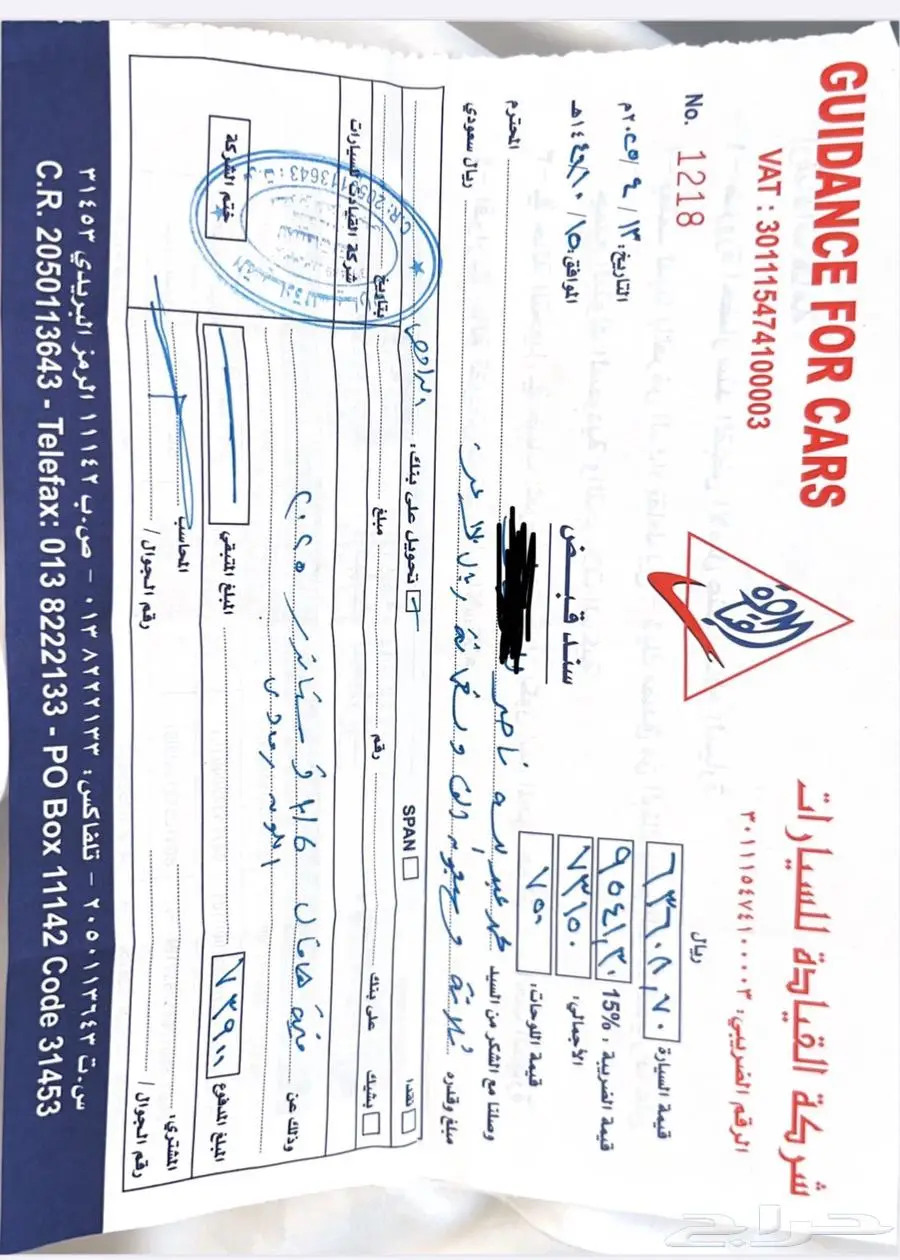 GUIDANCE FOR CARS
شركة القيادة للسيارات
VAT : 301115474100003
الرقم الضريبي: ٣٠١١١٥٤٧٤١٠٠٠٠٣
القيادة
No. 1218
ريال
التاريخ: ١٣ / ٤ / ٢٠٢٥م
الموافق: ١٥ / ١٠ / ١٤٤٦هـ
سند قبض
قيمة السيارة ٦٣٦٠٨,٧٠
قيمة الضريبة ، 15% ٩٥٤١,٣٠
الأجمالي: ٧٣١٥٠
قيمة اللوحات: ٧٥٠
وصلنا مع الشكر من السيد عبدالله ناصر المحترم
مبلغ وقدره ثلاثة وسبعون ألف وتسعمائة ريال لاغير ريال سعودي
نقدا SPAN تحويل على بنك: الراجحي
بشيك على بنك رقم مبلغ بتاريخ
وذلك عن قيمة هافال شركة القيادة للسيارات
المبلغ المدفوع ٧٣٩٠٠ المبلغ المتبقي
ختم الشركة
C.R: 2050113643 : س.ت
المشتري: المحاسب
رقم الجوال / رقم الجوال /
س.ت ٢٠٥٠١١٣٦٤٣ - تلفاكس: ٠١٣٨٢٢٢١٣٣ - ص.ب ١١١٤٢ الرمز البريدي ٣١٤٥٣
C.R. 2050113643 - Telefax: 013 8222133 - PO Box 11142 Code 31453
حراج